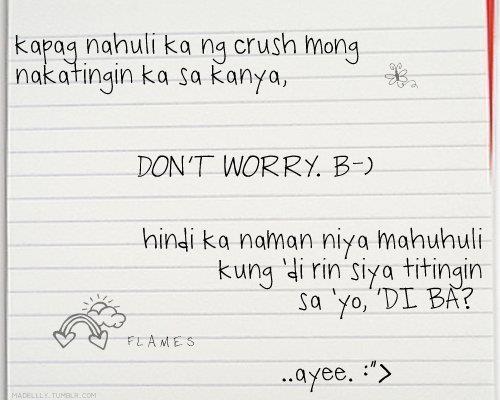 kapag nahuli ka ng crush mong
nakatingin ka sa kanya,
DON'T WORRY. B-)
hindi ka naman niya mahuhuli
kung 'di rin siya titingin
sa 'yo, 'DI BA?
FLAMES
..ayee. :">
MADELLLY.TUMBLR.COM